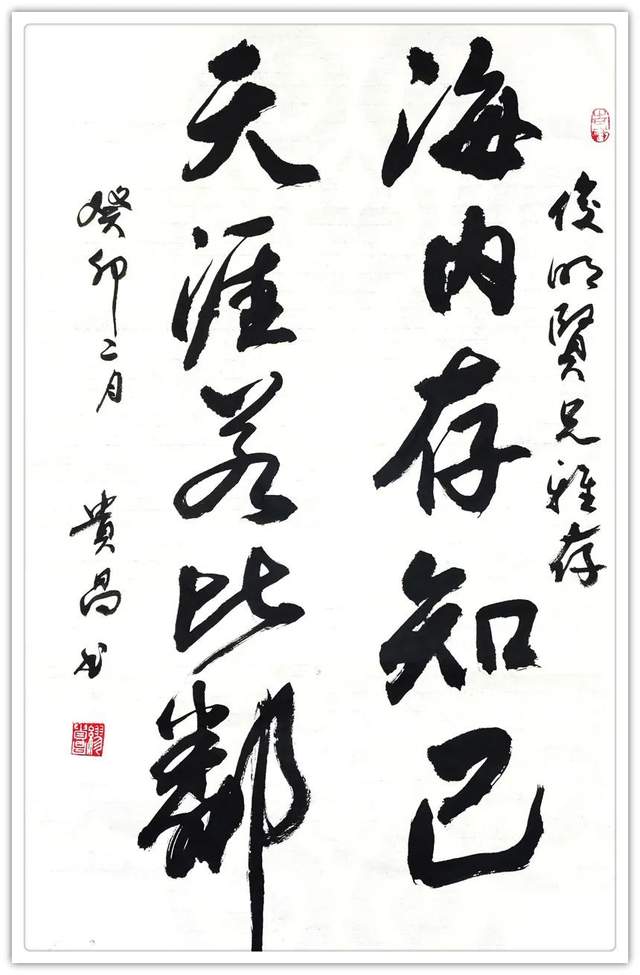 俊明贤兄雅存
海内存知己
天涯若比鄰
癸卯二月
貴昌书